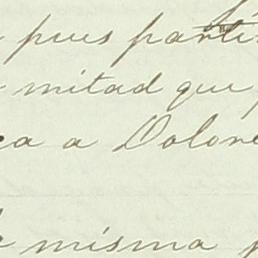 pues parti
mitad que
a a Dolore
misma